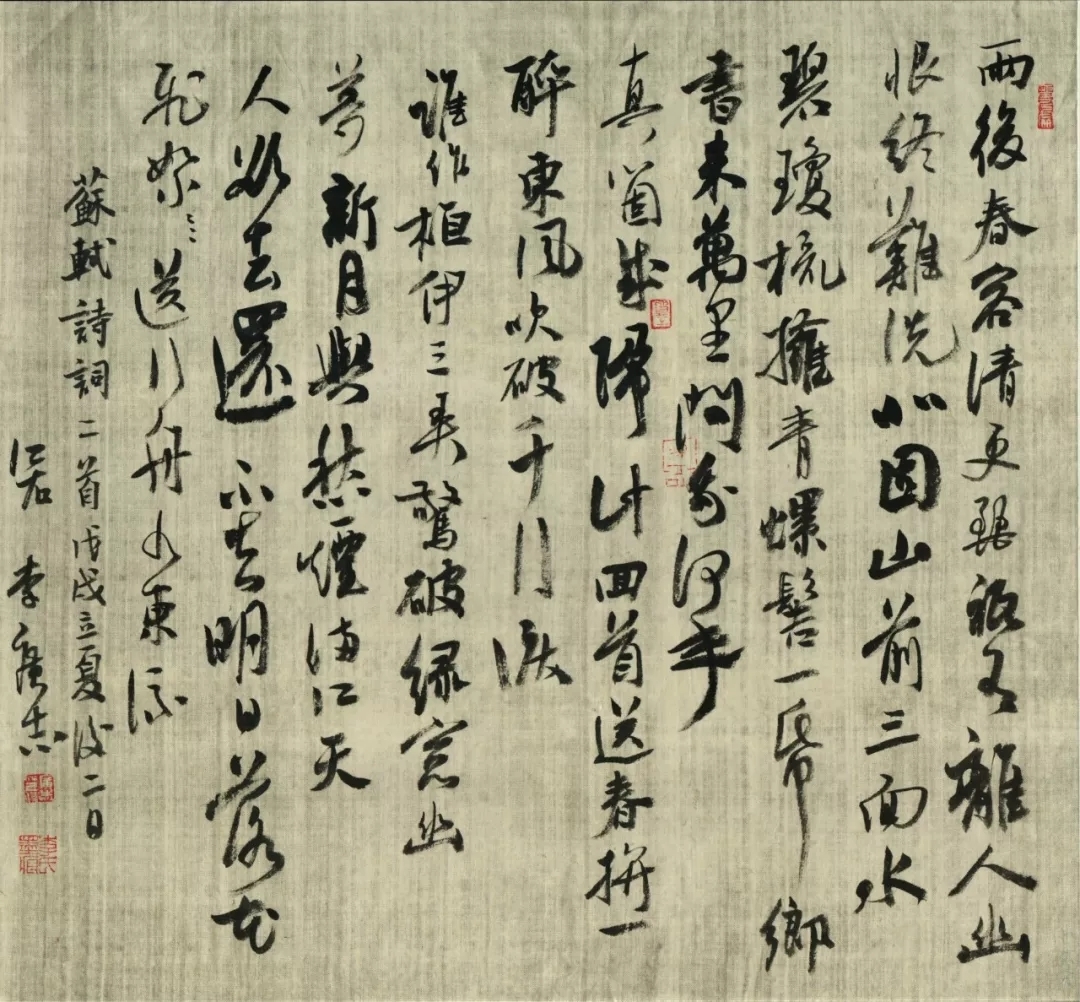 雨後春容清更麗祗有離人幽
恨終難洗北固山前三面水
碧瓊梳擁青螺髻一帋鄉
書來萬里問我何年
真箇成歸計回首送春拼一
醉東風吹破千行淚
誰作桓伊三弄驚破綠窓幽
夢新月與愁煙滿江天
人欲去還不去明日落花
飛絮〻〻送行舟水東流
蘇軾詩詞二首戊戌立夏後二日
李